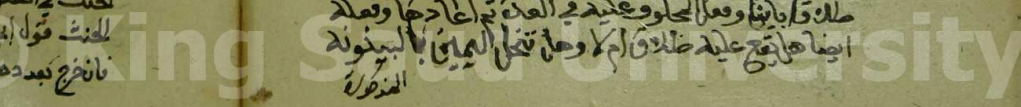 طلاقا باينا وفعل المحلوف عليه في العدة ثم اعادها وفعله
ايضا هل يقع عليه طلاق ام لا وهل تنحل اليمين بالبينونة
المذكورة
الحنث قول
فان خرج بعد
King Saud University